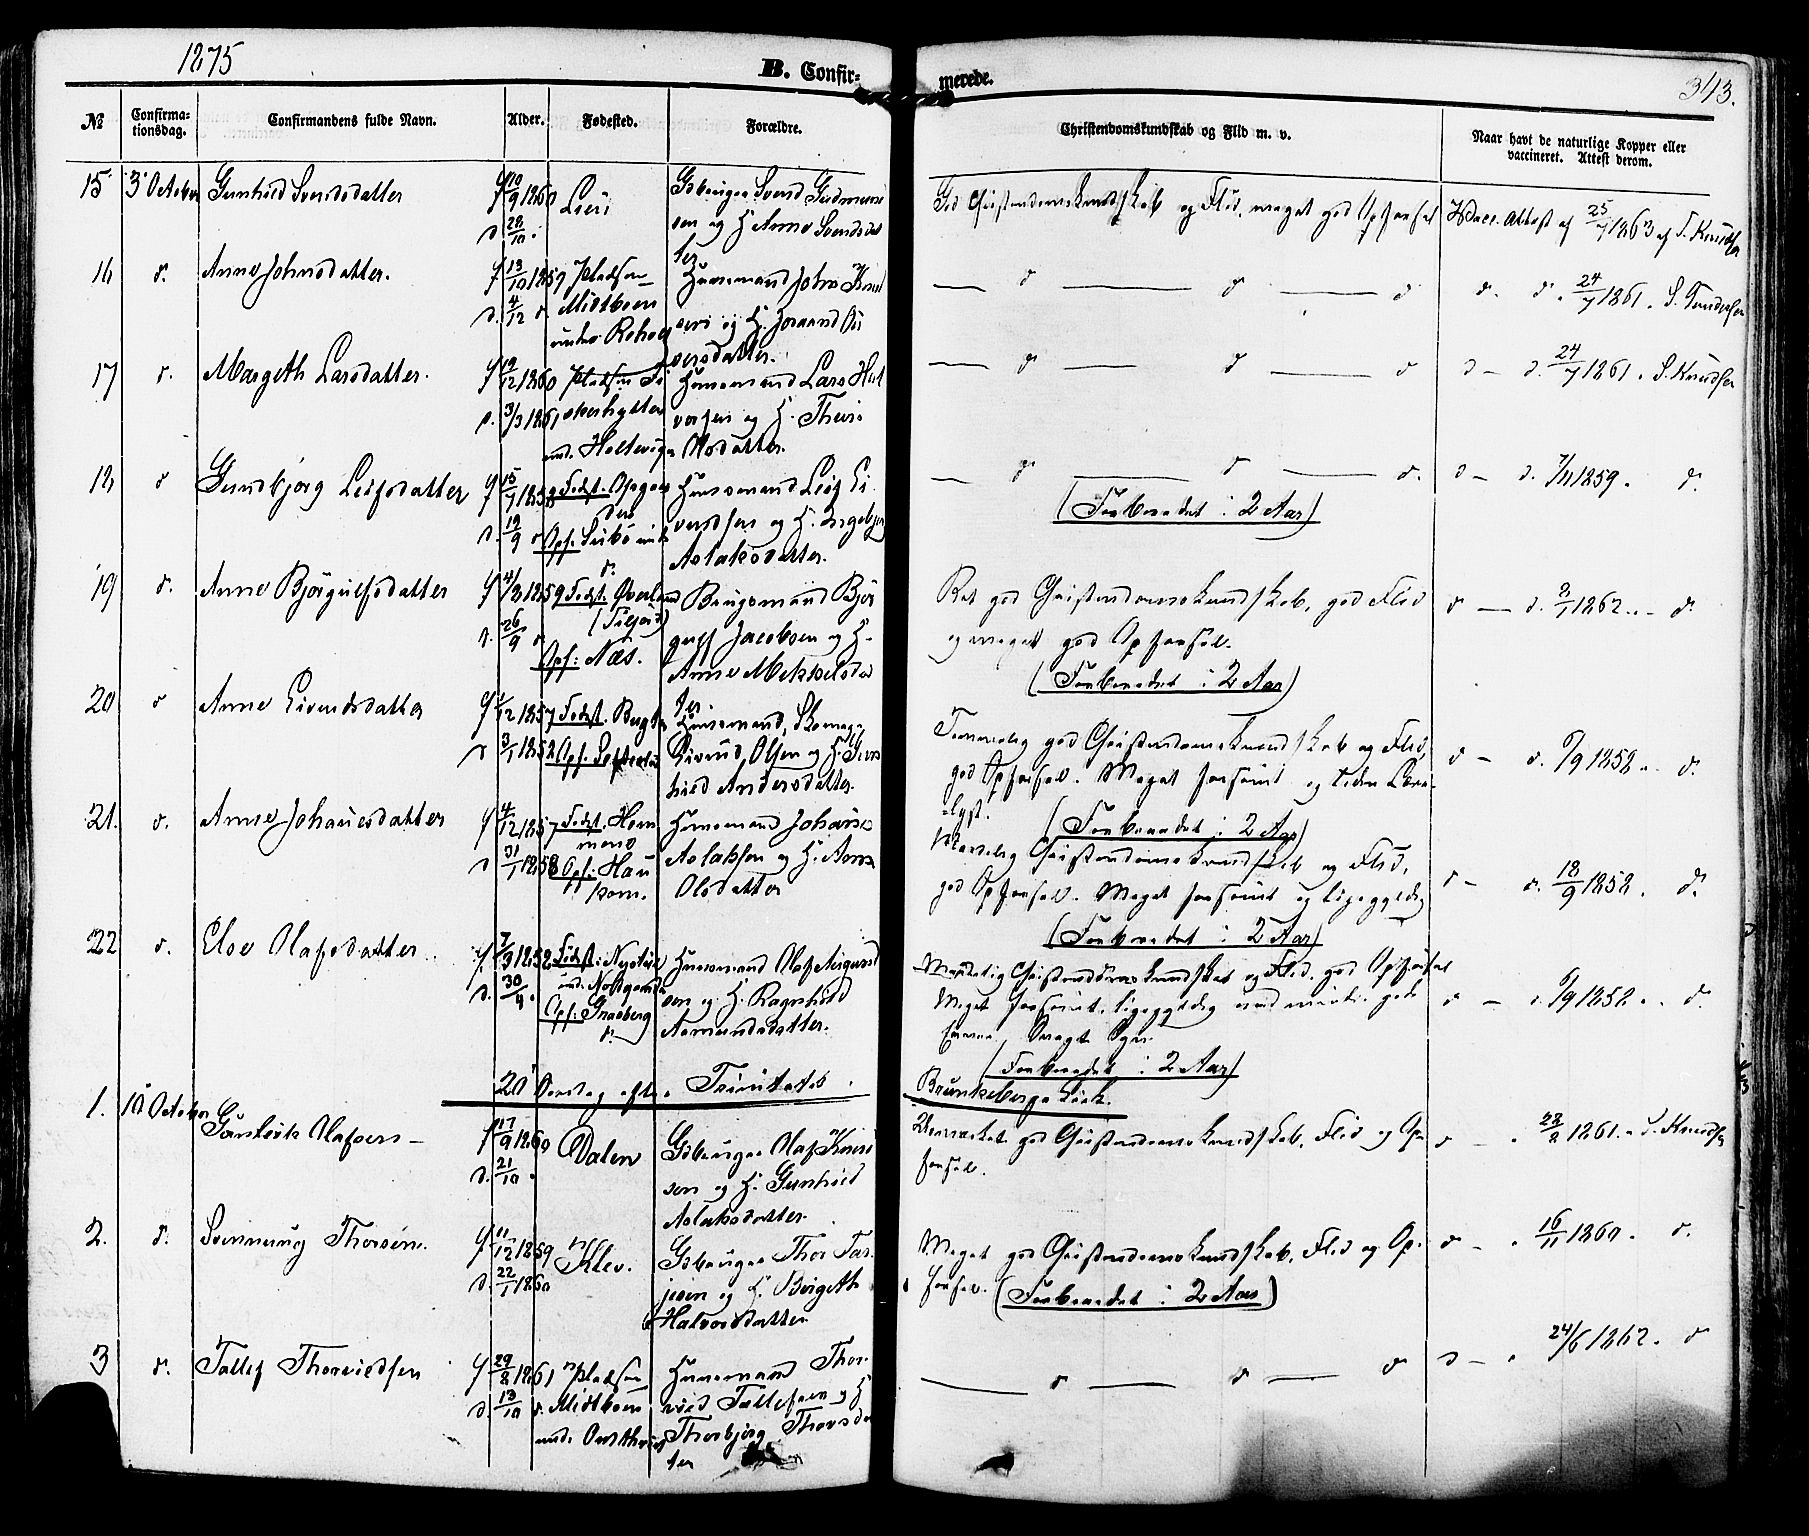 1875
B. Confirmerede.
343.
№
Confirmationsdag.
Confirmandens fulde Navn.
Alder.
Fødested.
Forældre.
Christendomskundskab og Flid m. v.
Naar havt de naturlige Kopper eller vaccineret. Attest derom.
15 3 October Gunhild Svendsdatter
f 10/9 1860
d 28/10
Lien
Gbruger Svend Gudmund
sen og H. Anne Svendsdat
ter
God Christendomskundskab og Flid, meget god Opførsel
Vacc. Attest af 25/7 1863 af S. Knudsen
16 d. Anne Johnsdatter.
f 13/10 1859
d. 4/12 d.
Pladsen
Midtboen
under
Huusmand John Knud
sen og H.
versdatter.
d d d
d. d. 24/7 1861.
17 d. Margeth Larsdatter.
f 12 1860
d. 3/3 1861
Pladsen
Huusmand Lars Hal
vorsen og H.
Olsdatter.
d d d
d d. 24/7 1861. S. Knudsen
18 d Gundbjørg Leifsdatter
f 15/7 1858
d. 19/9
Fødst.
Opf.
Huusmand Leif Ei
vindsen og H. Ingebjør
Aslaksdatter.
d d d.
(Forberedet i 2 Aar)
d d. 7/11 1859. d.
19 d. Anne Bjørgulfsdatter
f 4/3 1859
d. 26/9 d
Fødst. Overland
Opf: Næs.
Brugsmand Bjør
gulf Jacobsen og H.
Anne Mikkelsdat
ter.
Ret god Christendomskundskab, god Flid
og meget god Opførsel.
(Forberedet i 2 Aar)
d d. 8/1 1862. d.
20 d Anne Eivindsdatter
f /12 1857
d 3/1 1858
Fødst.
Opf.
Huusmand, Skomager
Eivind Olsen og H. Gun
hild Andersdatter.
Temmelig god Christendomskundskab og Flid,
god Opførsel. Meget forsømt og liden Lære-
lyst.
(Forberedet i 2 Aar)
d d. 6/9 1858. d.
21. d. Anne Johannesdatter
f 4/12 1857
d 31/1 1858
Fødst. Hem
mens
Opf: Hau
kom.
Huusmand Johannes
Aslaksen og H. Anne
Olsdatter
Christendomskundskab og Flid,
god Opførsel. Meget forsømt og ligegyldig
(Forberedet i 2 Aar)
d d. 18/9 1858. d.
22 d. Else Olafsdatter
f. 7/3 1858
d. 30/4
Fødst:
Opf:
Huusmand Olaf Asmund
sen og H. Ragnhild
Aamundsdatter.
Maadelig Christendomskundskab og Flid, god Opførsel
Meget forsømt, ligegyldig
(Forberedet i 2 Aar)
d d. 6/9 1858. d.
20' Søndag efter Trinitatis
Brunkeberg Kirk.
1. 10 October Olafsen
f 17/9 1860
d. 21/10
Dalen
Gbruger Olaf Knud
sen og H. Gunhild
Aslaksdatter.
Udmærket god Christendomskundskab, Flid og Op
førsel.
d 28/8 1861. S. Knudsen
2. d. Svennung Thorsen.
f 11/12 1859
d 22/1 1860
Klev.
Gbruger Thor Tar
jesen og H. Birgeth
Halvorsdatter
Meget god Christendomskundskab, Flid og Op-
førsel. (Forberedet i 2 Aar)
d 16/11 1860. d.
3 d. Tallef Thorvildsen
f 29/8 1861
d. 13/10 d.
Pladsen
Midtboen
und.
Huusmand Thor
vild Tallefsen og H
Thorbjørg Thorsdat
ter
d d d
d 24/6 1862. d